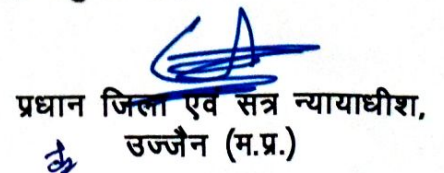 प्रधान जिला एवं सत्र न्यायाधीश,
उज्जैन (म.प्र.)